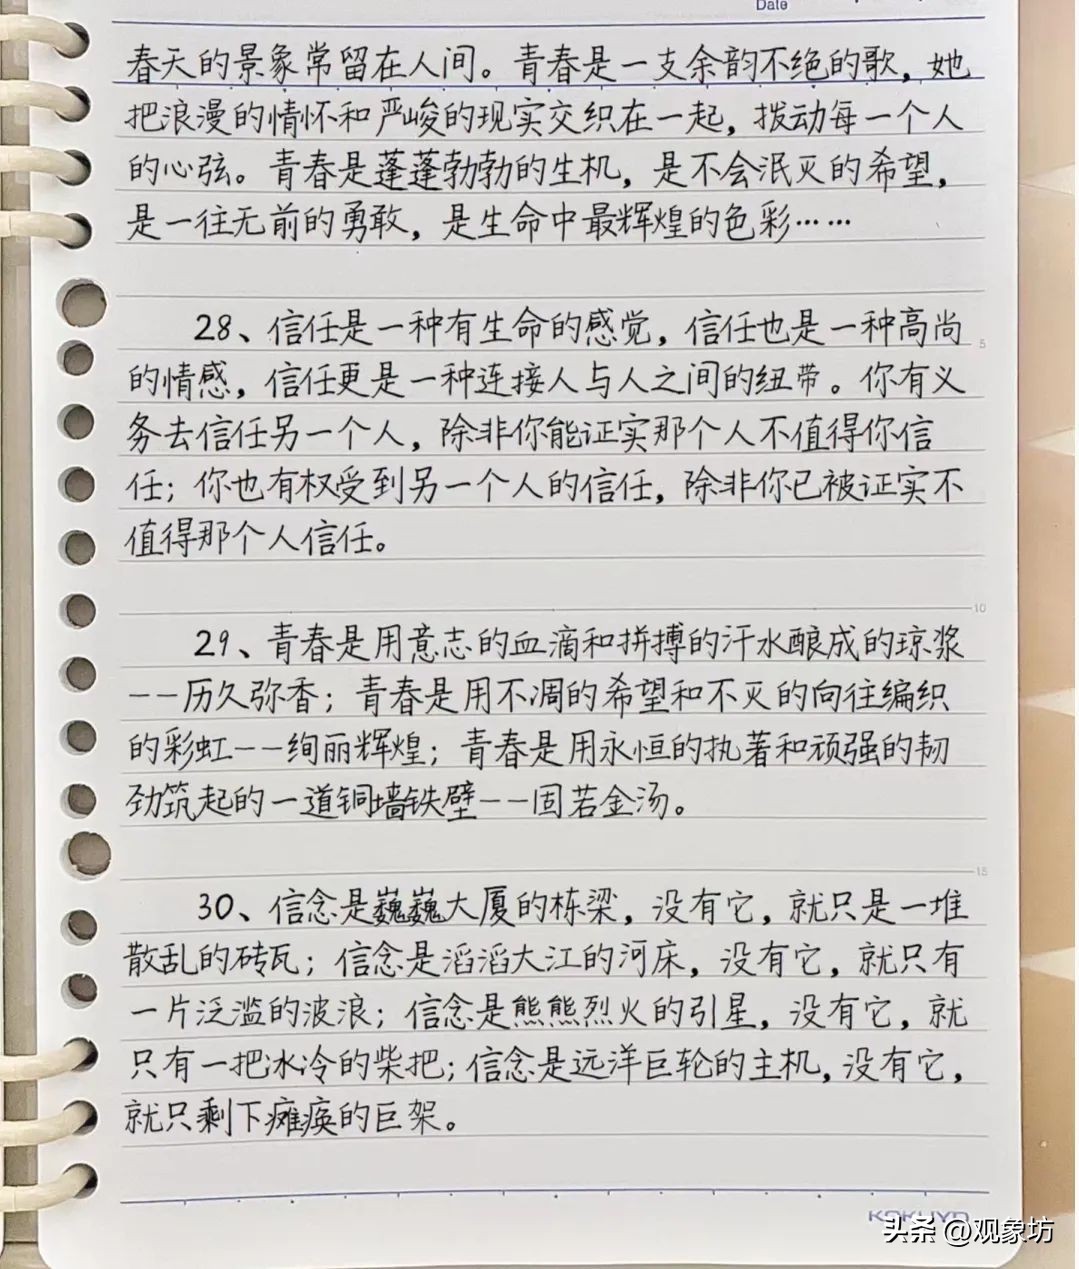 Date
春天的景象常留在人间。青春是一支余韵不绝的歌，她
把浪漫的情怀和严峻的现实交织在一起，拨动每一个人
的心弦。青春是蓬蓬勃勃的生机，是不会泯灭的希望，
是一往无前的勇敢，是生命中最辉煌的色彩……
28、信任是一种有生命的感觉，信任也是一种高尚
5
的情感，信任更是一种连接人与人之间的纽带。你有义
务去信任另一个人，除非你能证实那个人不值得你信
任；你也有权受到另一个人的信任，除非你已被证实不
值得那个人信任。
10
29、青春是用意志的血滴和拼搏的汗水酿成的琼浆
——历久弥香；青春是用不凋的希望和不灭的向往编织
的彩虹——绚丽辉煌；青春是用永恒的执著和顽强的韧
劲筑起的一道铜墙铁壁——固若金汤。
15
30、信念是巍巍大厦的栋梁，没有它，就只是一堆
散乱的砖瓦；信念是滔滔大江的河床，没有它，就只有
一片泛滥的波浪；信念是熊熊烈火的引星，没有它，就
只有一把冰冷的柴把；信念是远洋巨轮的主机，没有它，
就只剩下瘫痪的巨架。
KOKUYO
头条 @观象坊